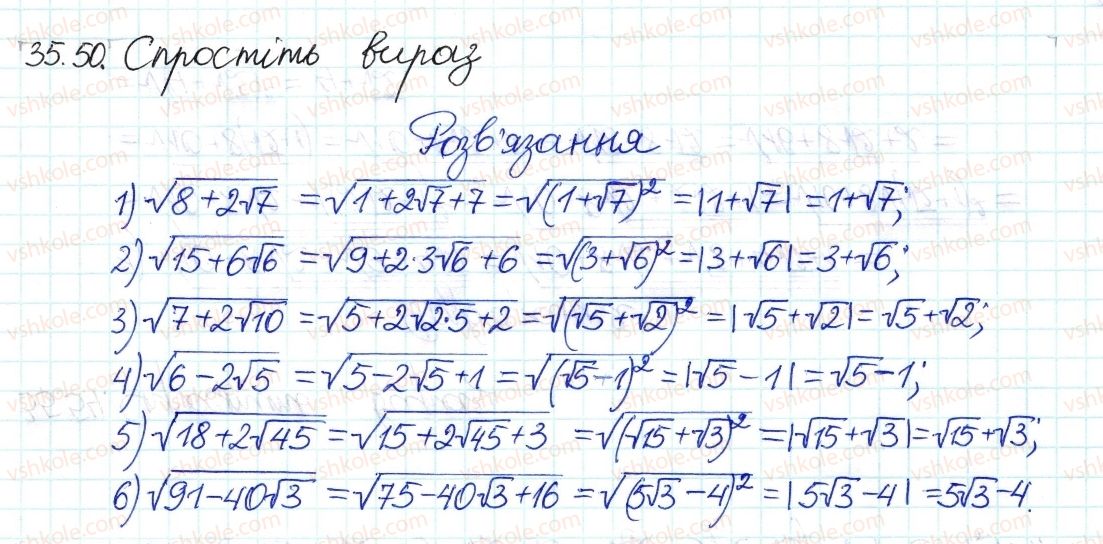 35.50. Спростіть вираз
Розв'язання
1) √(8+2√7) = √(1+2√7+7) = √((1+√7)²) = |1+√7| = 1+√7;
2) √(15+6√6) = √(9+2·3√6+6) = √((3+√6)²) = |3+√6| = 3+√6;
3) √(7+2√10) = √(5+2√(2·5)+2) = √((√5+√2)²) = |√5+√2| = √5+√2;
4) √(6-2√5) = √(5-2√5+1) = √((√5-1)²) = |√5-1| = √5-1;
5) √(18+2√45) = √(15+2√45+3) = √((√15+√3)²) = |√15+√3| = √15+√3;
6) √(91-40√3) = √(75-40√3+16) = √((5√3-4)²) = |5√3-4| = 5√3-4.